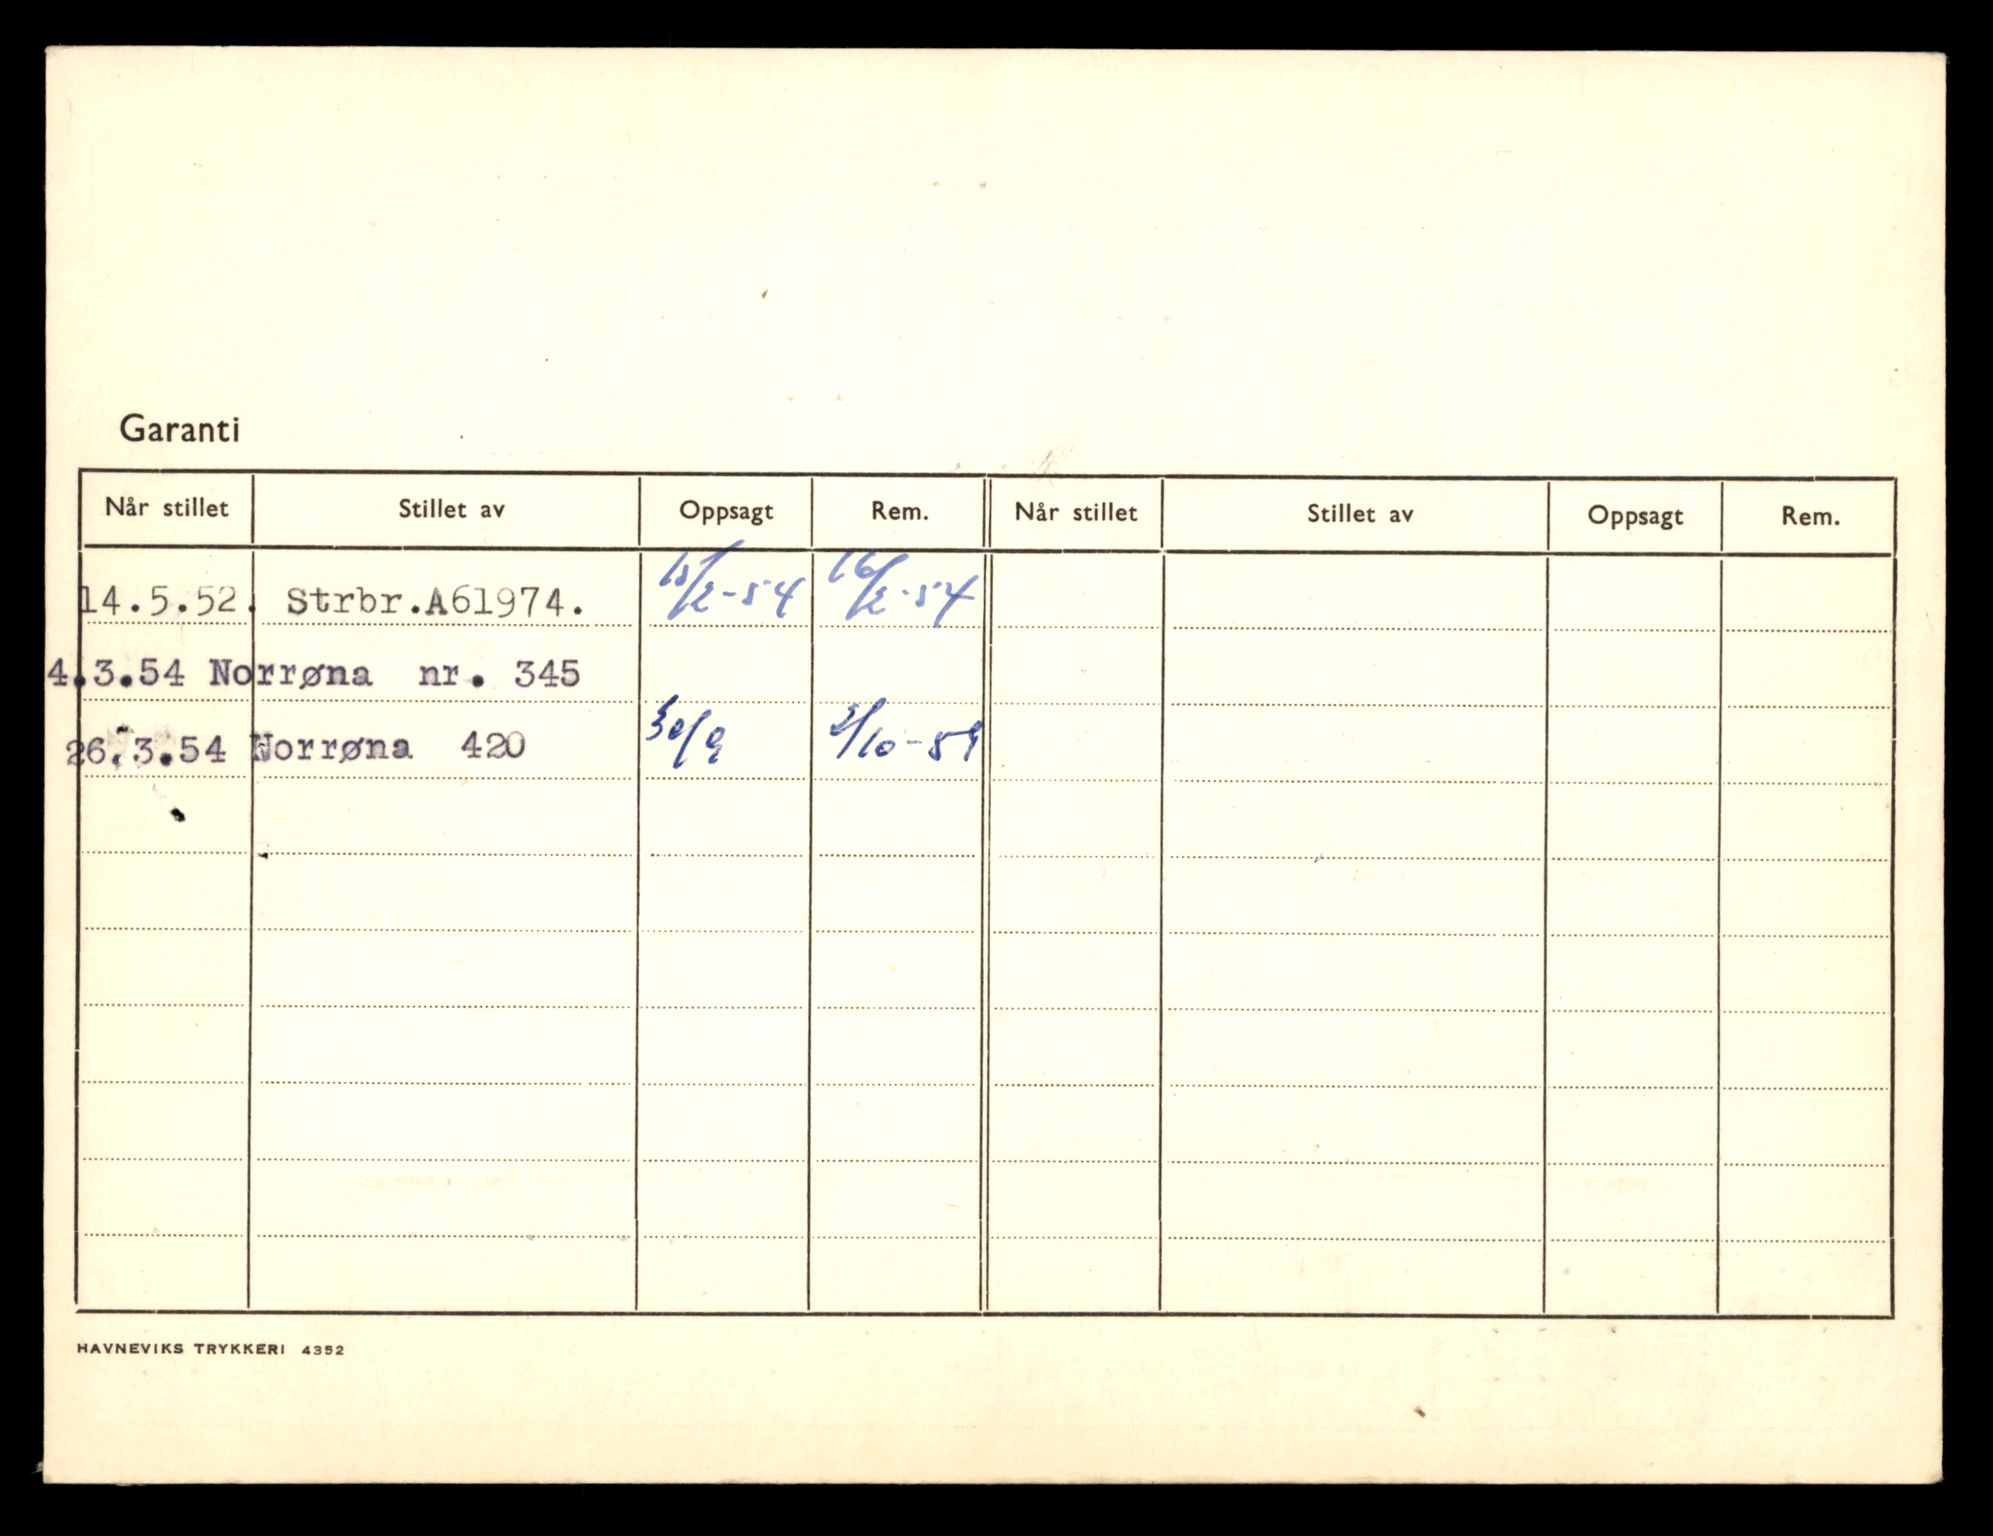 Garanti
Når stillet Stillet av Oppsagt Rem. Når stillet Stillet av Oppsagt Rem.
14.5.52. Strbr.A61974. 15/2-54 16/2-54
4.3.54 Norrøna nr. 345
26.3.54 Norrøna 420 30/9 2/10-59
HAVNEVIKS TRYKKERI 4352